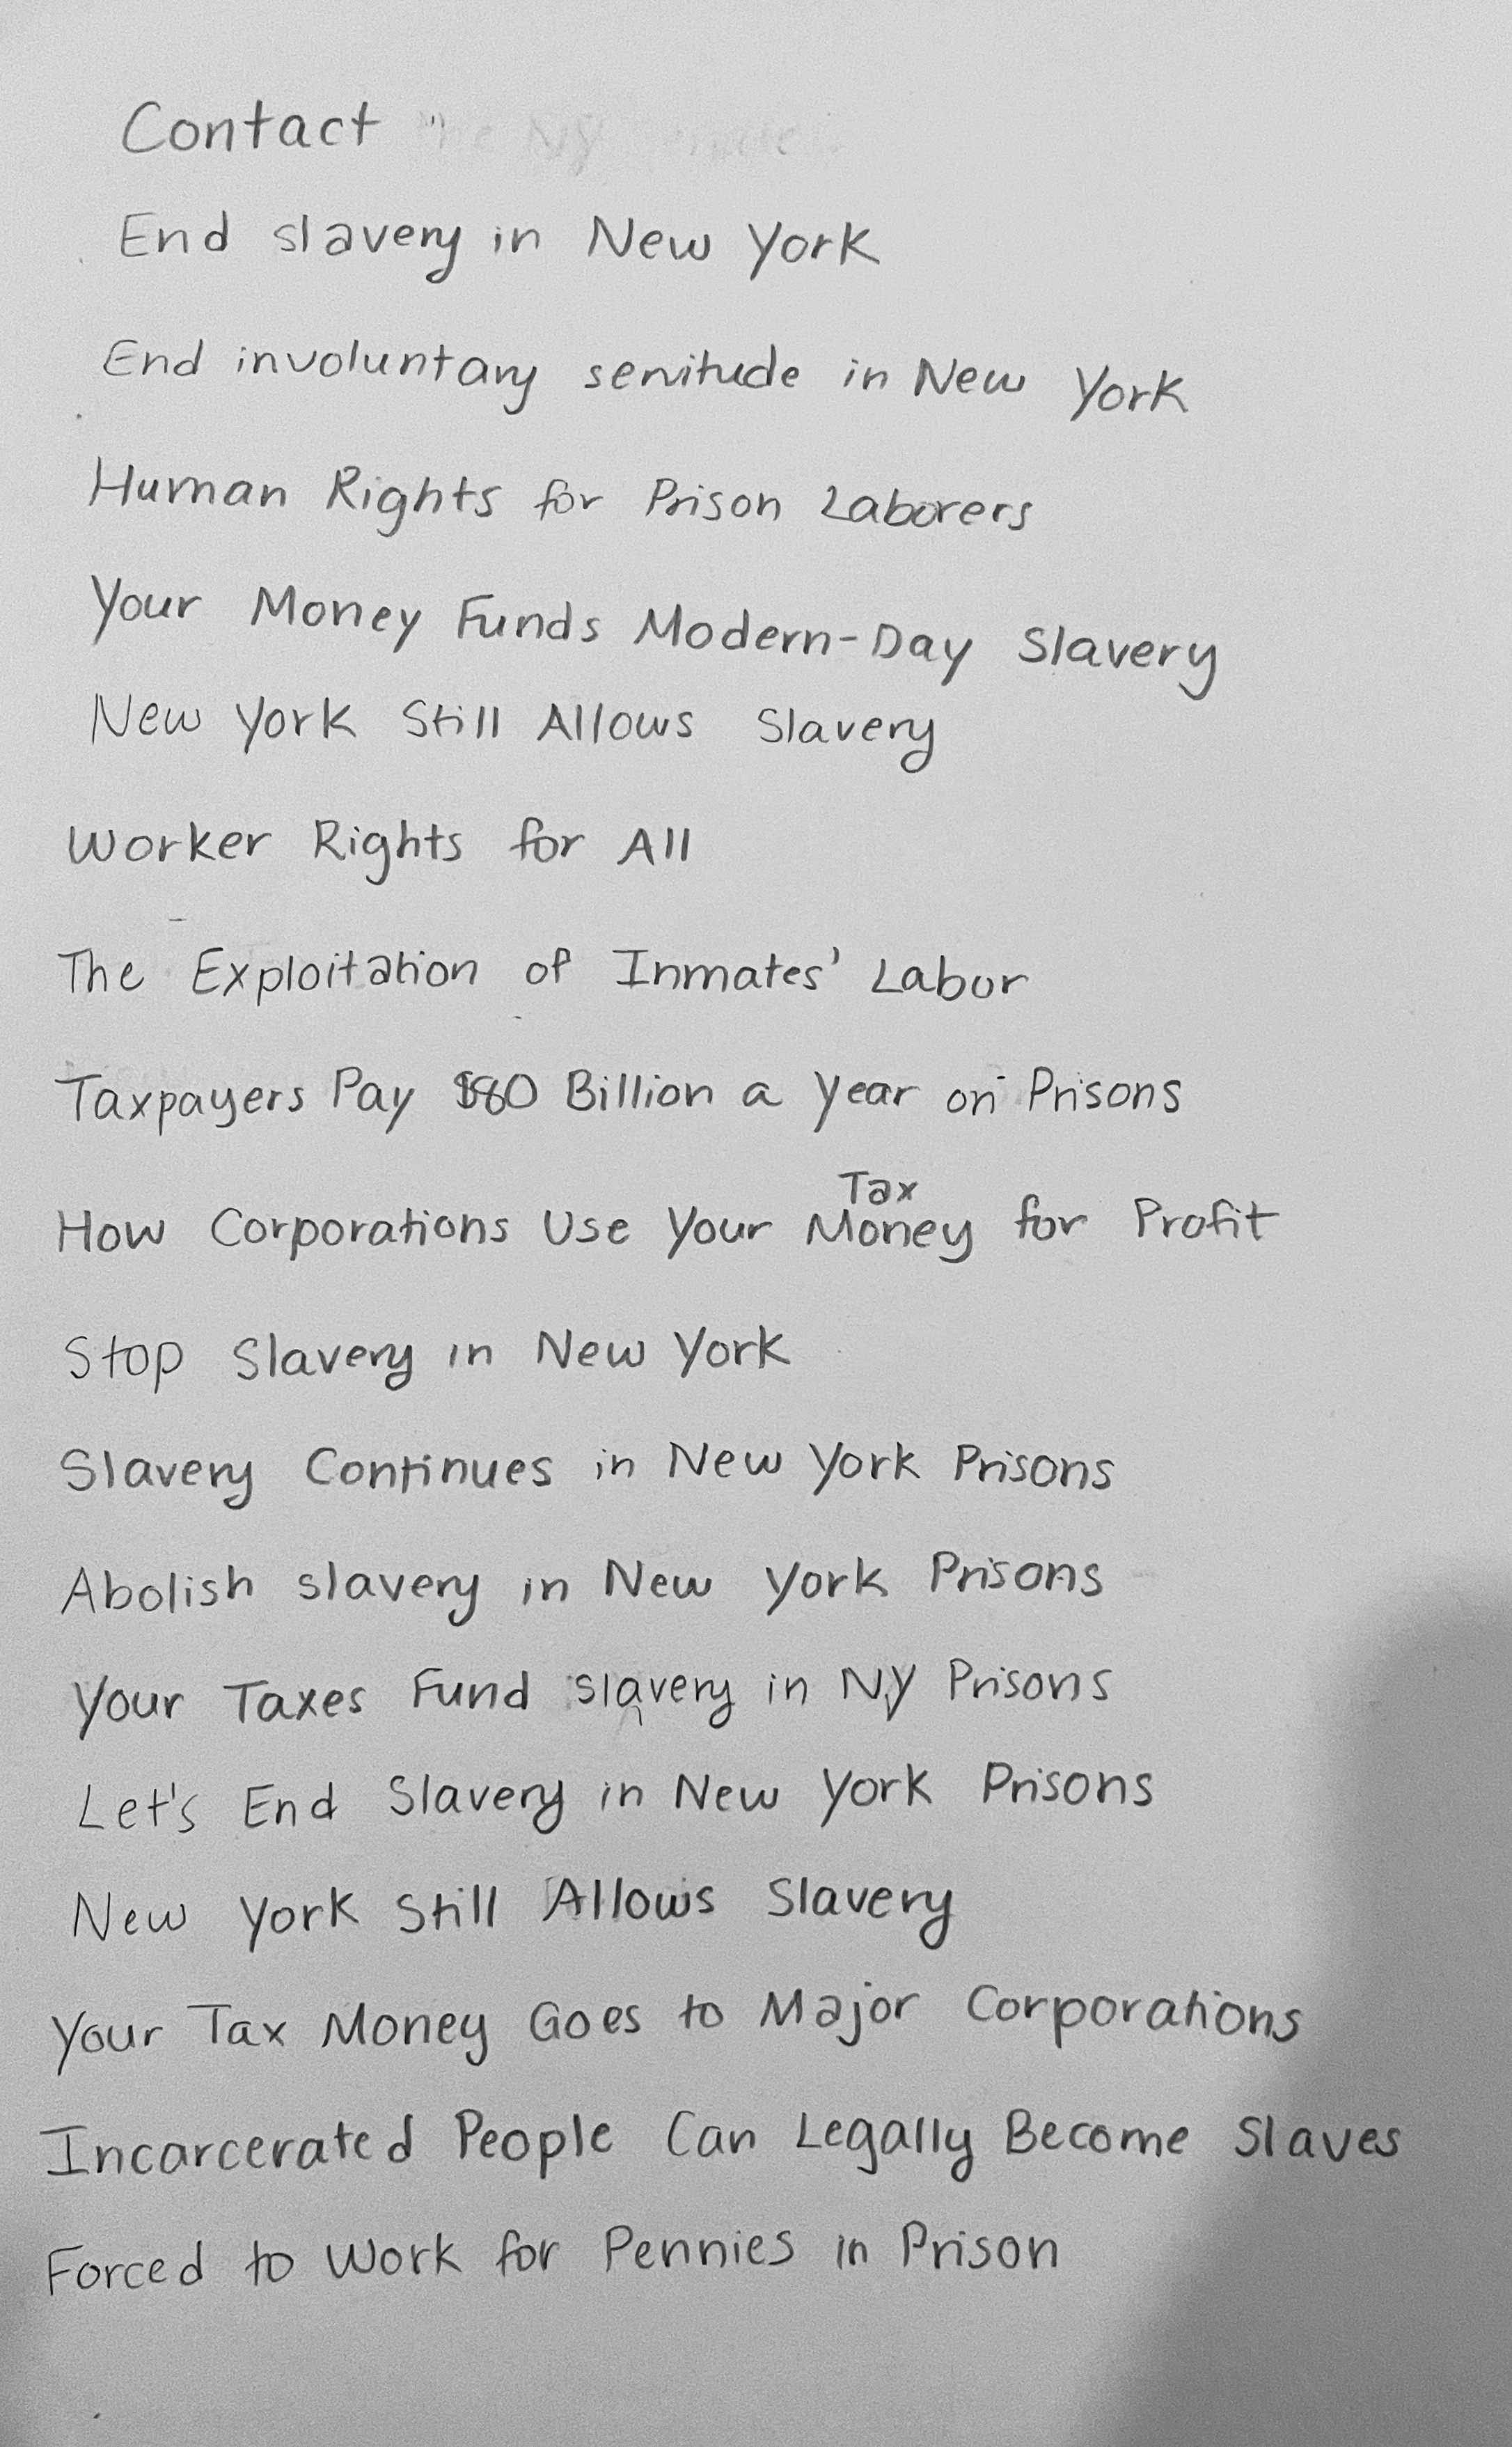 Contact
End slavery in New York
End involuntary servitude in New York
Human Rights for Prison Laborers
Your Money Funds Modern-Day Slavery
New York Still Allows Slavery
Worker Rights for All
The Exploitation of Inmates' Labor
Taxpayers Pay $80 Billion a Year on Prisons
How Corporations Use Your Tax Money for Profit
Stop Slavery in New York
Slavery Continues in New York Prisons
Abolish slavery in New York Prisons
Your Taxes Fund slavery in NY Prisons
Let's End Slavery in New York Prisons
New York Still Allows Slavery
Your Tax Money Goes to Major Corporations
Incarcerated People Can Legally Become Slaves
Forced to Work for Pennies in Prison